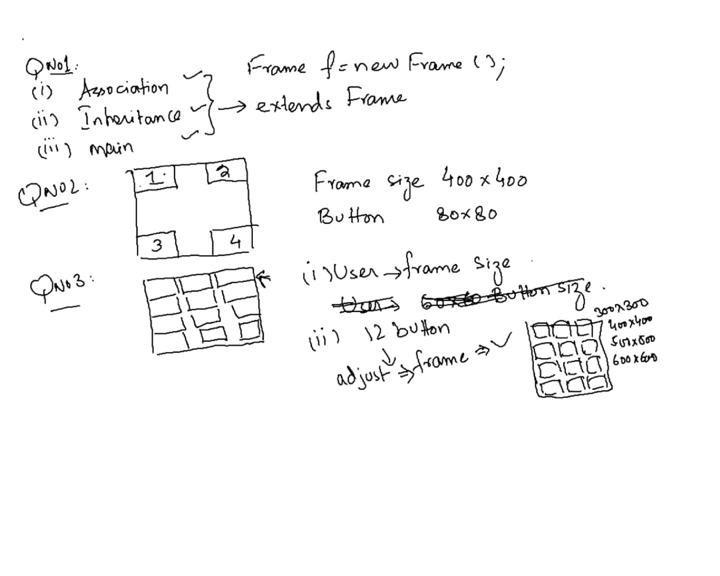 QNo1:
(i) Association
(ii) Inheritance
(iii) main
Frame f = new Frame ();
→ extends Frame
QNo2:
1
2
3
4
Frame size 400 x 400
Button 80x80
QNo3:
(i) User → frame size
User → 60x60 Button size.
(ii) 12 button
adjust ⇒ frame ⇒ ✓
300x300
400x400
500x500
600x600